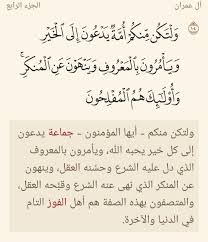 آل عمران
الجزء الرابع
وَلْتَكُن مِّنكُمْ أُمَّةٌ يَدْعُونَ إِلَى ٱلْخَيْرِ
وَيَأْمُرُونَ بِٱلْمَعْرُوفِ وَيَنْهَوْنَ عَنِ ٱلْمُنكَرِ ۚ
وَأُو۟لَـٰٓئِكَ هُمُ ٱلْمُفْلِحُونَ
ولتكن منكم - أيها المؤمنون - جماعة يدعون
إلى كل خير يحبه الله، ويأمرون بالمعروف
الذي دل عليه الشرع وحسّنه العقل، وينهون
عن المنكر الذي نهى عنه الشرع وقبّحه العقل،
والمتصفون بهذه الصفة هم أهل الفوز التام
في الدنيا والآخرة.